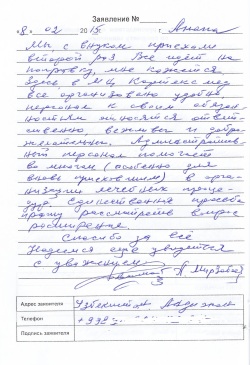 Заявление №
"8" 02 2015 г. г. Анапа
Мы с внуком приехали
второй раз. Все идет на
поправку, мне кажется
здесь в МЦ Комплекс мед
все организовано удобно
персонал к своим обязан
ностям относятся ответ
ственно, вежливы и добро
желательны. Административ
ный персонал помогает
во многом (особенно для
вновь приехавших) в орга
низации лечебных проце
дур. Единственная просьба
прошу рассмотреть вопрос
расширения.
Спасибо за всё
Надеемся ещё увидеться
с уважением
Адрес заявителя Узбекистан Андижан
Телефон
Подпись заявителя